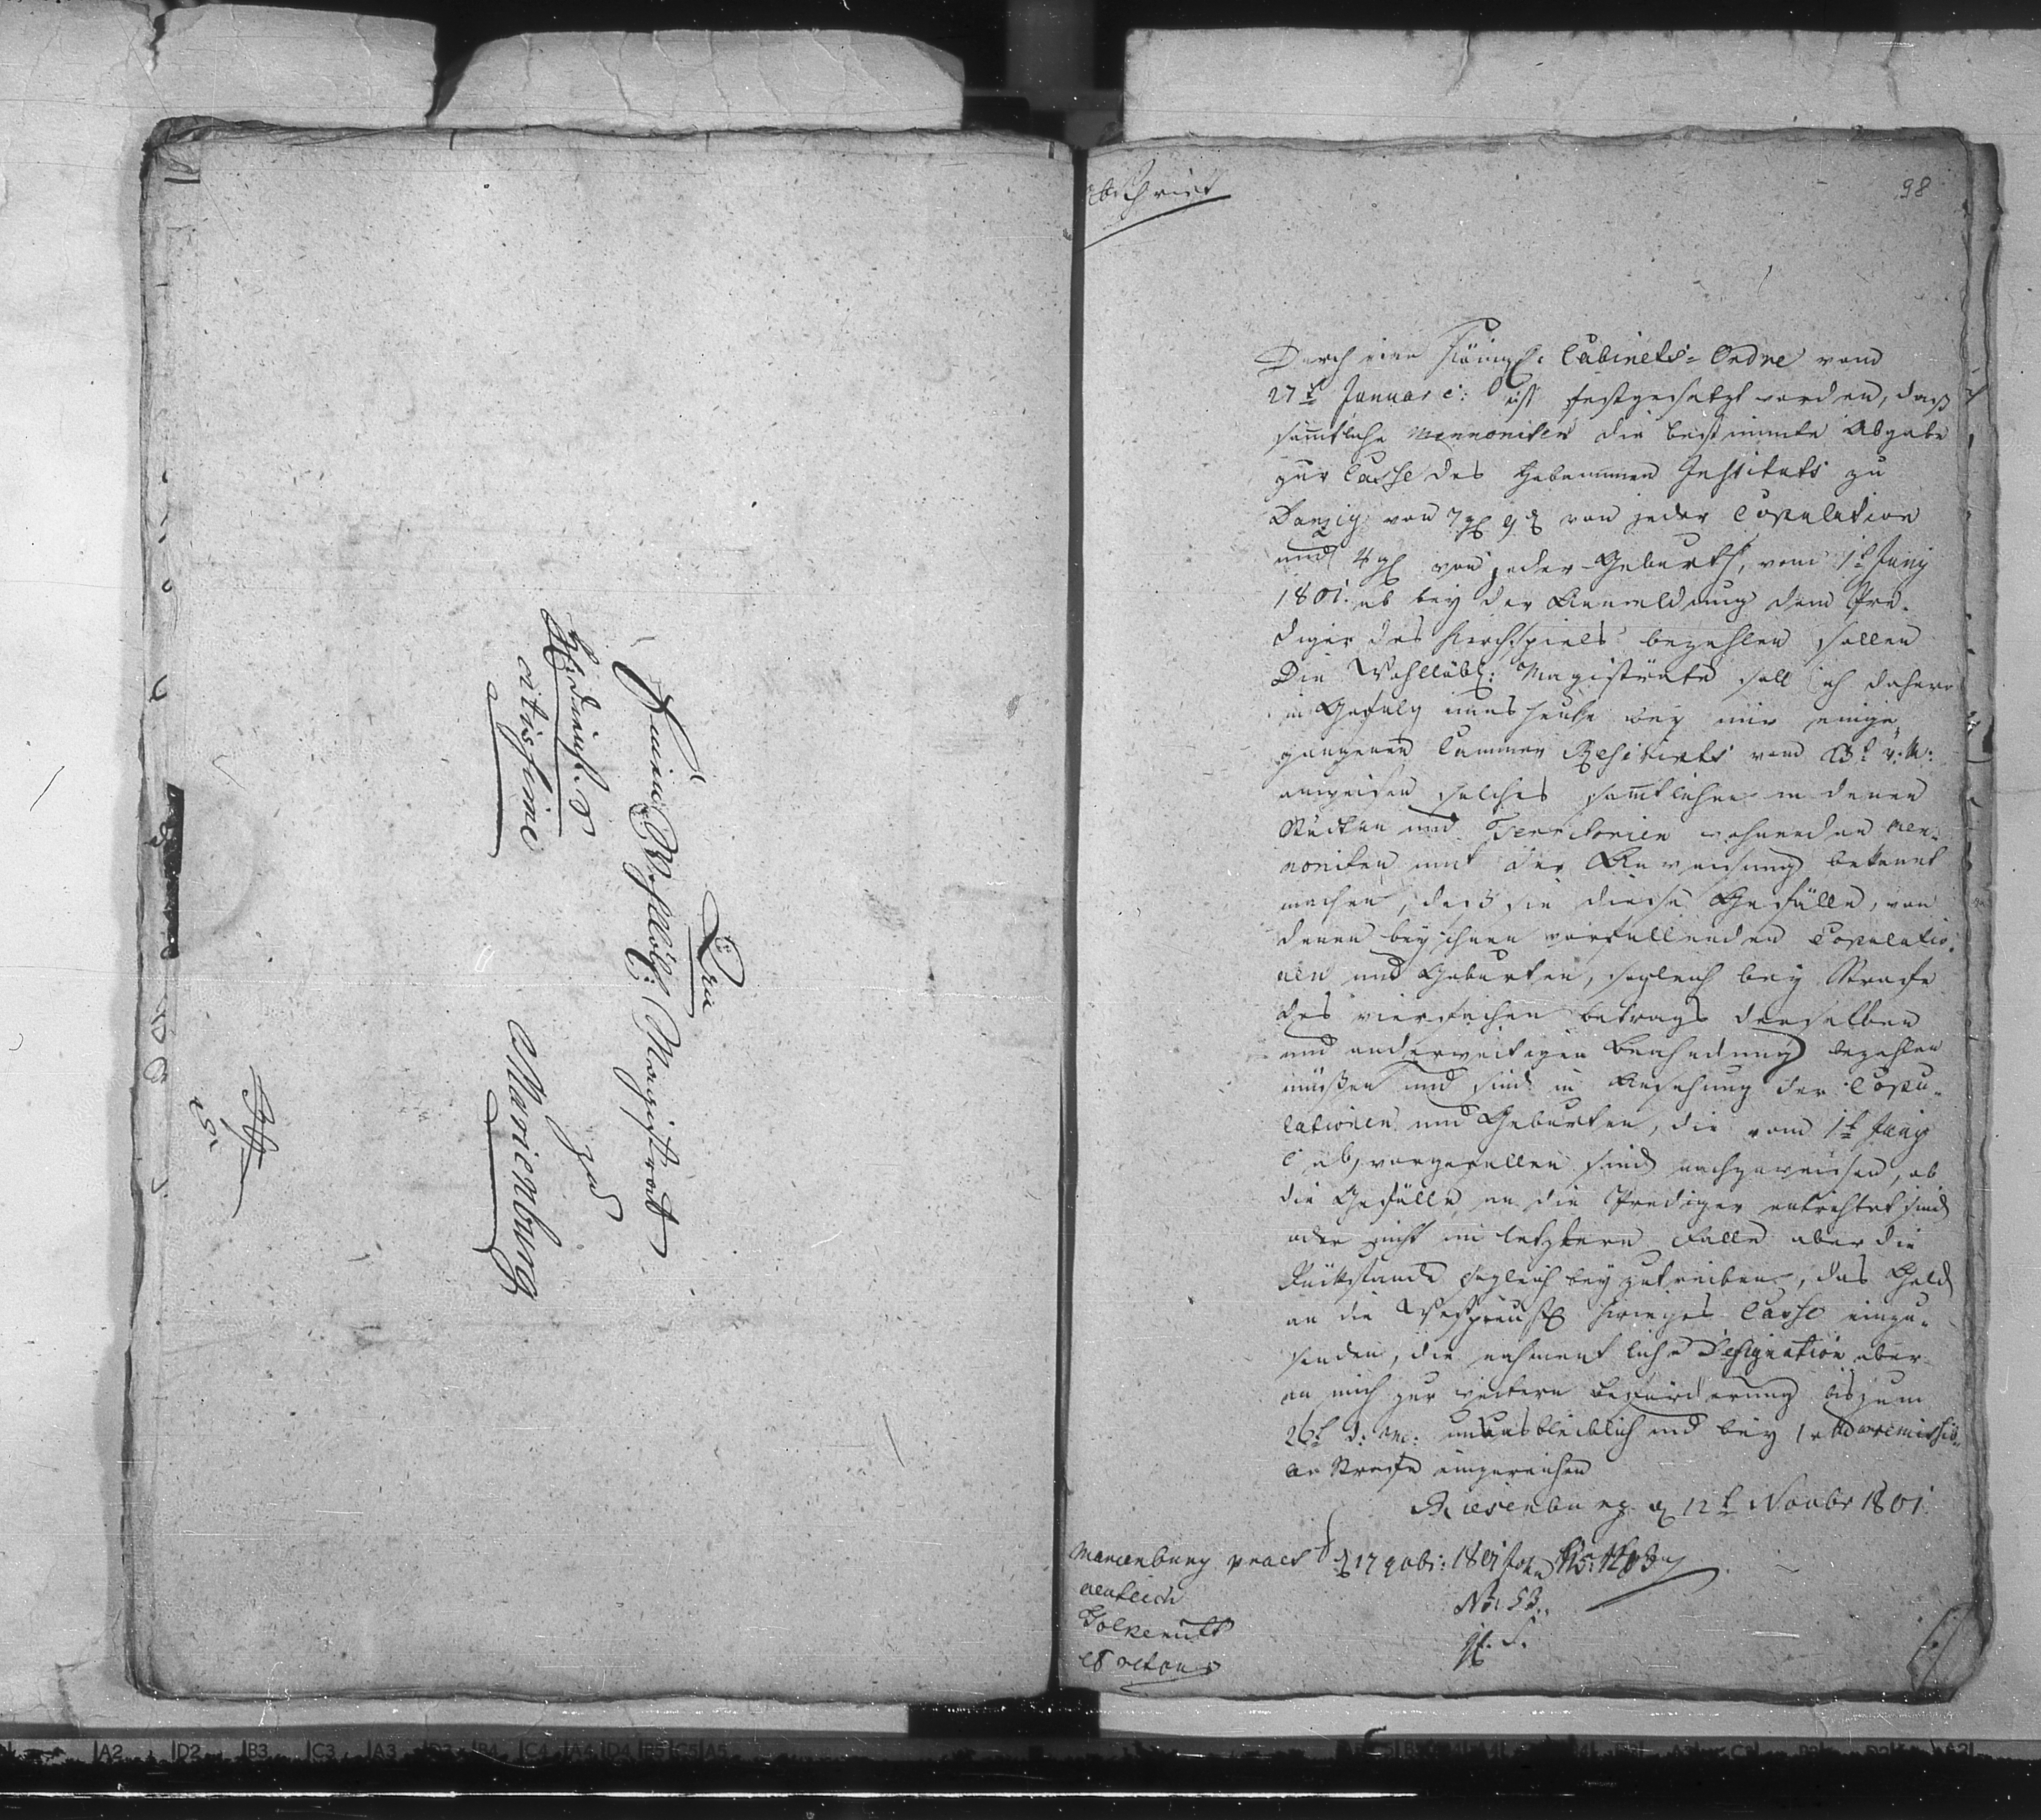 An
Einen Wohllöbl: Magistrat
zu
Marienburg
citissime
Abschrift
98
Durch eine Königl: Cabinets-Ordre vom
27t Januar c: ist festgesetzt worden, daß
sämtliche Mennoniten die bestimmte Abgabe
zur Casse des Hebammen Instituts zu
Danzig von 7 gl 9 d von jeder Copulation
und 4 gl von jeder Geburth, vom 1t Juny
1801. ab bey der Anmeldung dem Pre-
diger des Kirchspiels bezahlen sollen
Die Wohllöbl: Magisträte soll ich daher
in Gefolg eines heute bey mir einge-
gangenen Cammer Rescripts vom v: M:
anweisen solches sämtlichen in denen
Städten und Territorien wohnenden Men-
noniten mit der Anweisung bekannt
machen, daß sie diese Gefälle, von
denen bey ihnen vorfallenden Copulatio-
nen und Geburten, sogleich bey Strafe
des vierfachen betrags derselben
und anderweitigen Beahndung bezahlen
müßen und sind in Ansehung der Copu-
lationen und Geburten, die vom 1t Juny
c ab, vorgefallen sind nachzuweisen, ob
die Gefälle an die Prediger entrichtet sind
oder nicht im letztern Falle aber die
Rückstände sogleich beyzutreiben, das Geld
an die Westpreuß Krieges Casse einzu-
senden, die nahmentliche Designation aber
an mich zur weitern Beförderung bis zum
26t d: M: unausbleiblich und bey 1 r irremissib-
ler Strafe einzureichen
Riesenburg d 12t Novbr 1801.
Marienburg praes d 17 9obr: 1801
Neuteich
Tolkemit
No: 53.